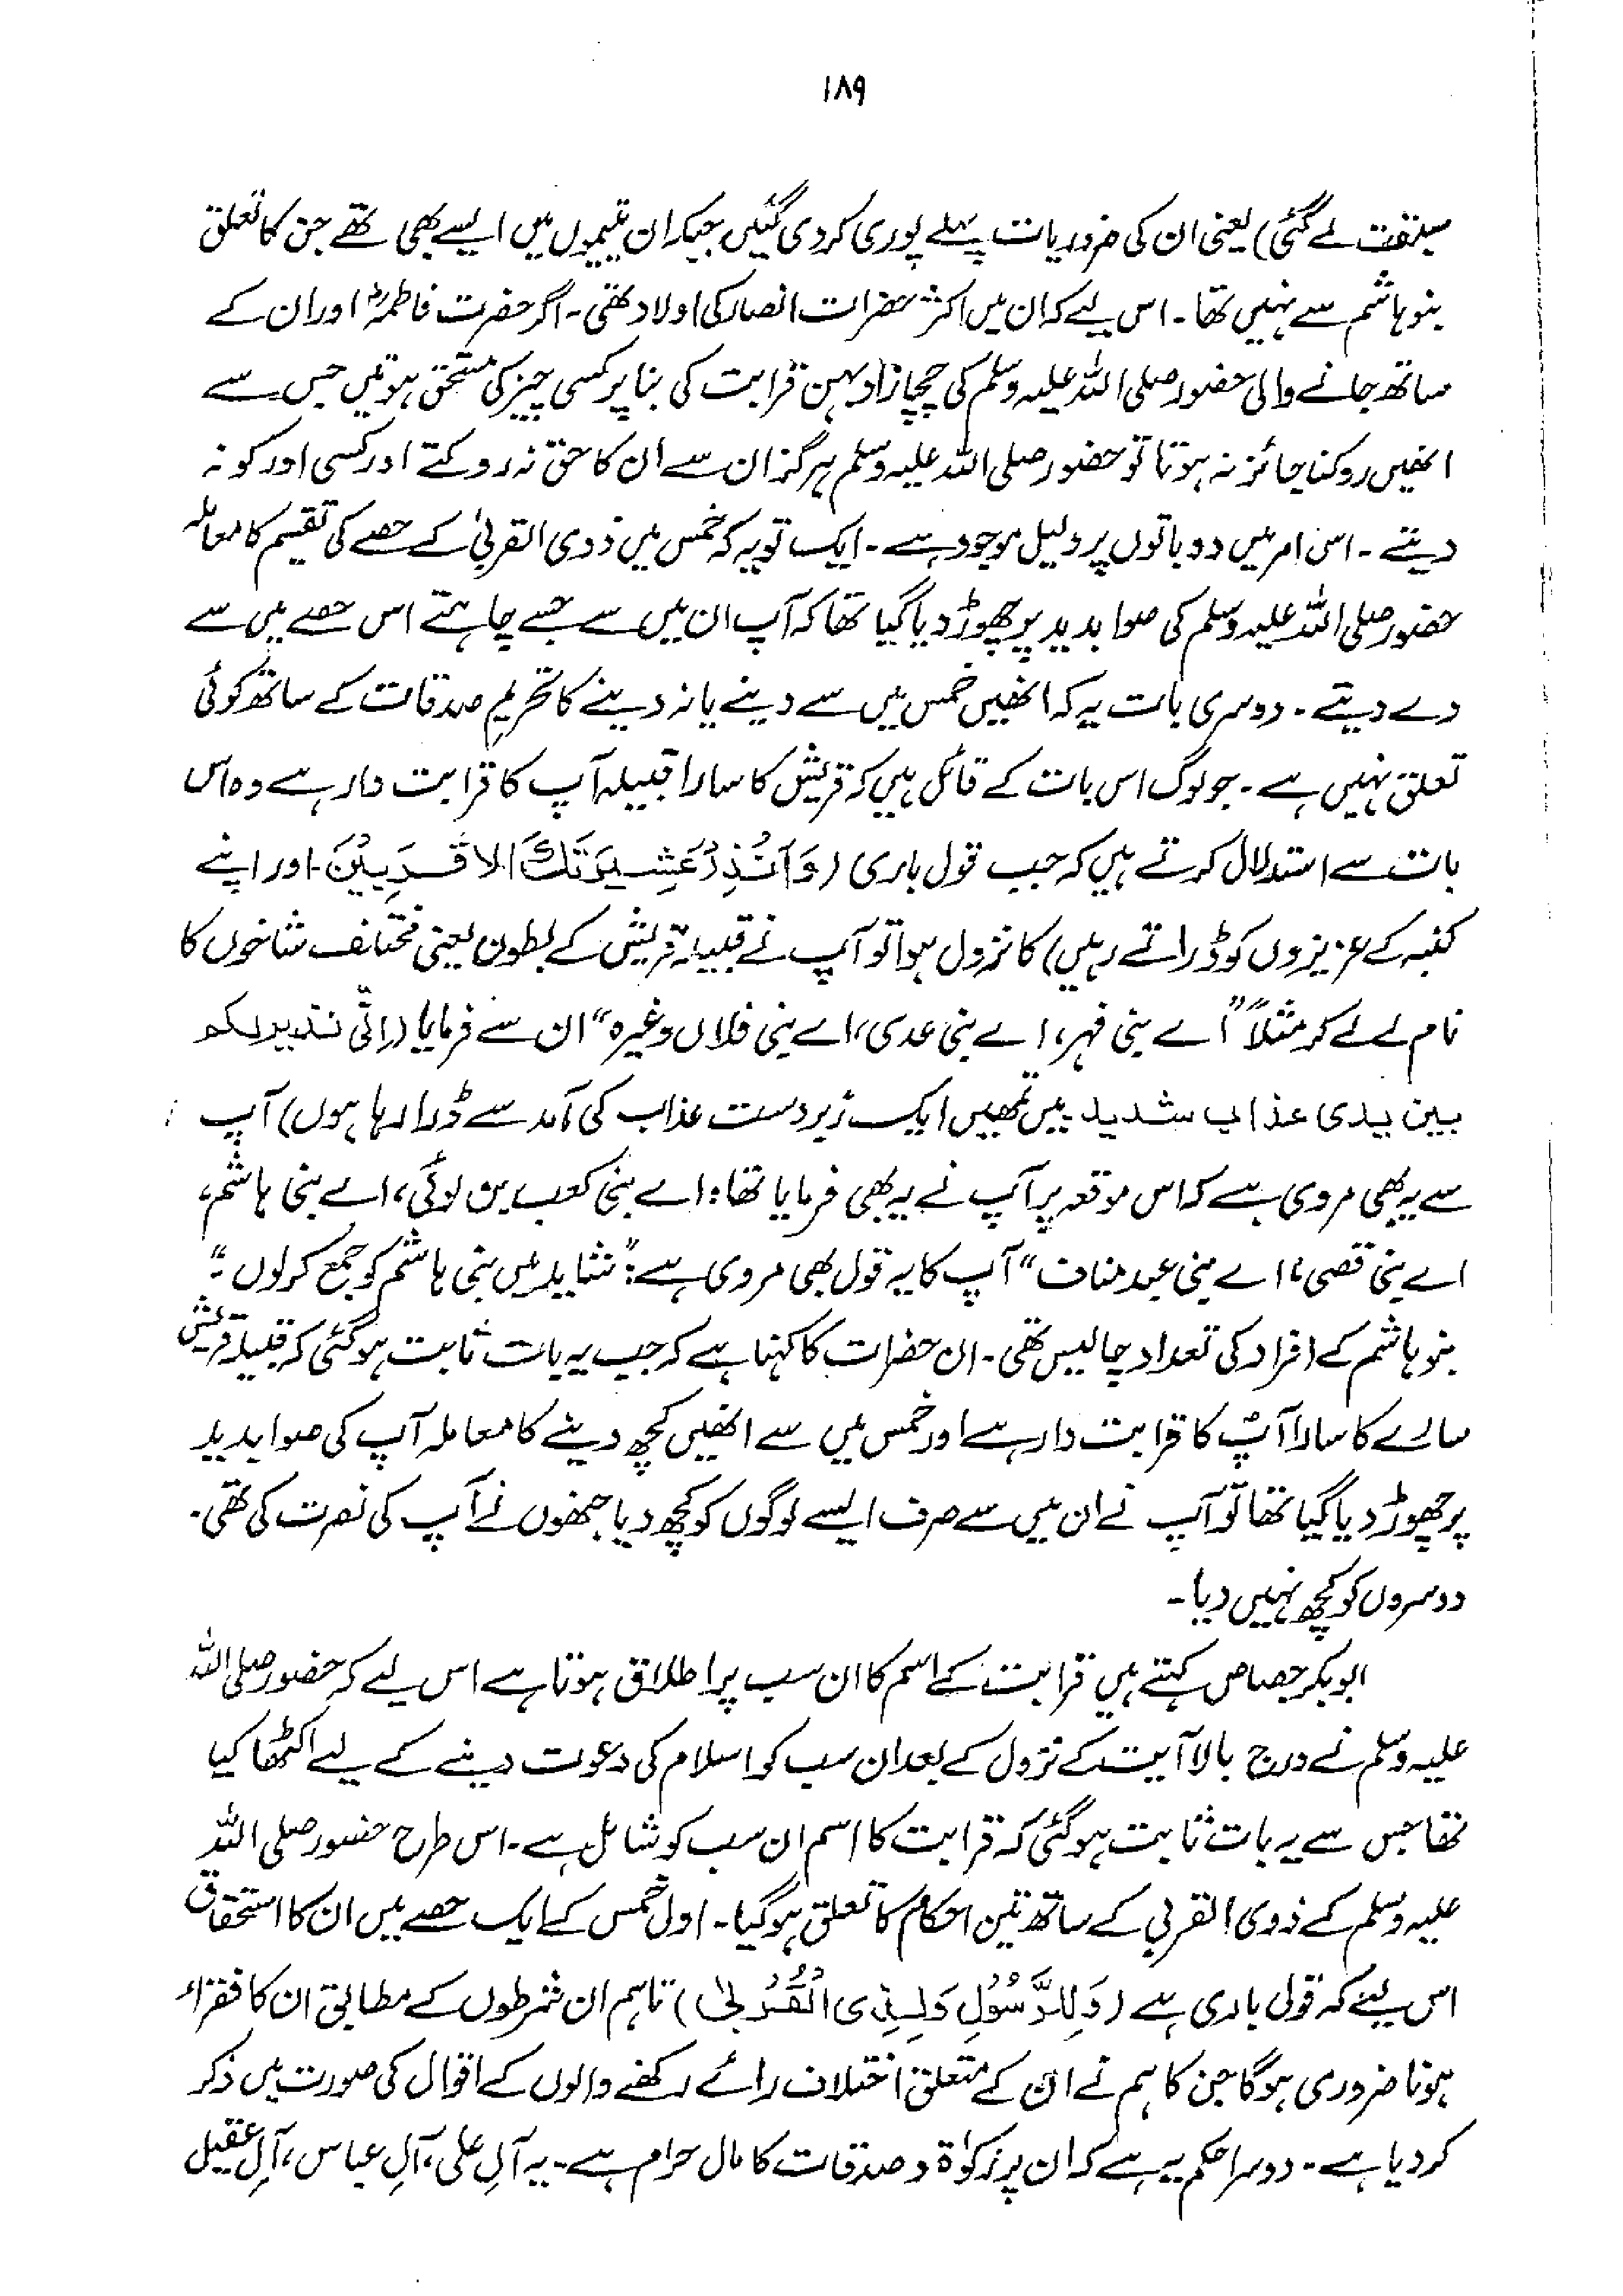 ۱۸۹
سبقت لے گئی) یعنی ان کی ضروریات پہلے پوری کر دی گئیں جبکہ ان یتیموں میں ایسے بھی تھے جن کا تعلق
بنو ہاشم سے نہیں تھا۔ اس لیے کہ ان میں اکثر حضرات انصار کی اولاد تھی۔ اگر حضرت فاطمہؓ اور ان کے
ساتھ جانے والی حضور صلی اللہ علیہ وسلم کی چچازاد بہن قرابت کی بنا پر کسی چیز کی مستحق ہوتیں جس سے
انھیں روکنا جائز نہ ہوتا تو حضور صلی اللہ علیہ وسلم ہرگز ان سے ان کا حق نہ روکتے اور کسی اور کو نہ
دیتے۔ اس امر میں دو باتوں پر دلیل موجود ہے۔ ایک تو یہ کہ خمس میں ذوی القربیٰ کے حصے کی تقسیم کا معاملہ
حضور صلی اللہ علیہ وسلم کی صوابدید پر چھوڑ دیا گیا تھا کہ آپ ان میں سے جسے چاہتے اس حصے میں سے
دے دیتے۔ دوسری بات یہ کہ انھیں خمس میں سے دینے یا نہ دینے کا تحریم صدقات کے ساتھ کوئی
تعلق نہیں ہے۔ جو لوگ اس بات کے قائل ہیں کہ قریش کا سارا قبیلہ آپ کا قرابت دار ہے وہ اس
بات سے استدلال کرتے ہیں کہ جب قول باری (وَاَنْذِرْ عَشِيْرَتَكَ الْاَقْرَبِيْنَ۔ اور اپنے
کنبہ کے عزیزوں کو ڈراتے رہیں) کا نزول ہوا تو آپ نے قبیلہ قریش کے بطون یعنی مختلف شاخوں کا
نام لے لے کر مثلاً ”اے بنی فہر، اے بنی عدی، اے بنی فلاں وغیرہ“ ان سے فرمایا (انّی نذیر لکم
بین یدی عذاب شدید میں تمھیں ایک زبردست عذاب کی آمد سے ڈرا رہا ہوں) آپ
سے یہ بھی مروی ہے کہ اس موقعہ پر آپ نے یہ بھی فرمایا تھا: اے بنی کعب بن لوئی، اے بنی ہاشم،
اے بنی قصی، اے بنی عبد مناف“ آپ کا یہ قول بھی مروی ہے: ”شاید میں بنی ہاشم کو جمع کر لوں“؛
بنو ہاشم کے افراد کی تعداد چالیس تھی۔ ان حضرات کا کہنا ہے کہ جب یہ بات ثابت ہو گئی کہ قبیلہ قریش
سارے کا سارا آپؐ کا قرابت دار ہے اور خمس میں سے انھیں کچھ دینے کا معاملہ آپ کی صوابدید
پر چھوڑ دیا گیا تھا تو آپ نے ان میں سے صرف ایسے لوگوں کو کچھ دیا جنھوں نے آپ کی نصرت کی تھی۔
دوسروں کو کچھ نہیں دیا۔
ابوبکر جصاص کہتے ہیں قرابت کے اسم کا ان سب پر اطلاق ہوتا ہے اس لیے کہ حضور صلی اللہ
علیہ وسلم نے درج بالا آیت کے نزول کے بعد ان سب کو اسلام کی دعوت دینے کے لیے اکٹھا کیا
تھا جس سے یہ بات ثابت ہو گئی کہ قرابت کا اسم ان سب کو شامل ہے۔ اس طرح حضور صلی اللہ
علیہ وسلم کے ذوی القربیٰ کے ساتھ تین احکام کا تعلق ہو گیا۔ اول خمس کے ایک حصے میں ان کا استحقاق
اس لیے کہ قول باری ہے (وَلِلرَّسُوْلِ وَلِذِی الْقُرْبیٰ) تاہم ان شرطوں کے مطابق ان کا فقراء
ہونا ضروری ہوگا جن کا ہم نے ان کے متعلق اختلاف رائے رکھنے والوں کے اقوال کی صورت میں ذکر
کر دیا ہے۔ دوسرا حکم یہ ہے کہ ان پر زکوٰۃ و صدقات کا مال حرام ہے۔ یہ آلِ علی، آلِ عباس، آلِ عقیل